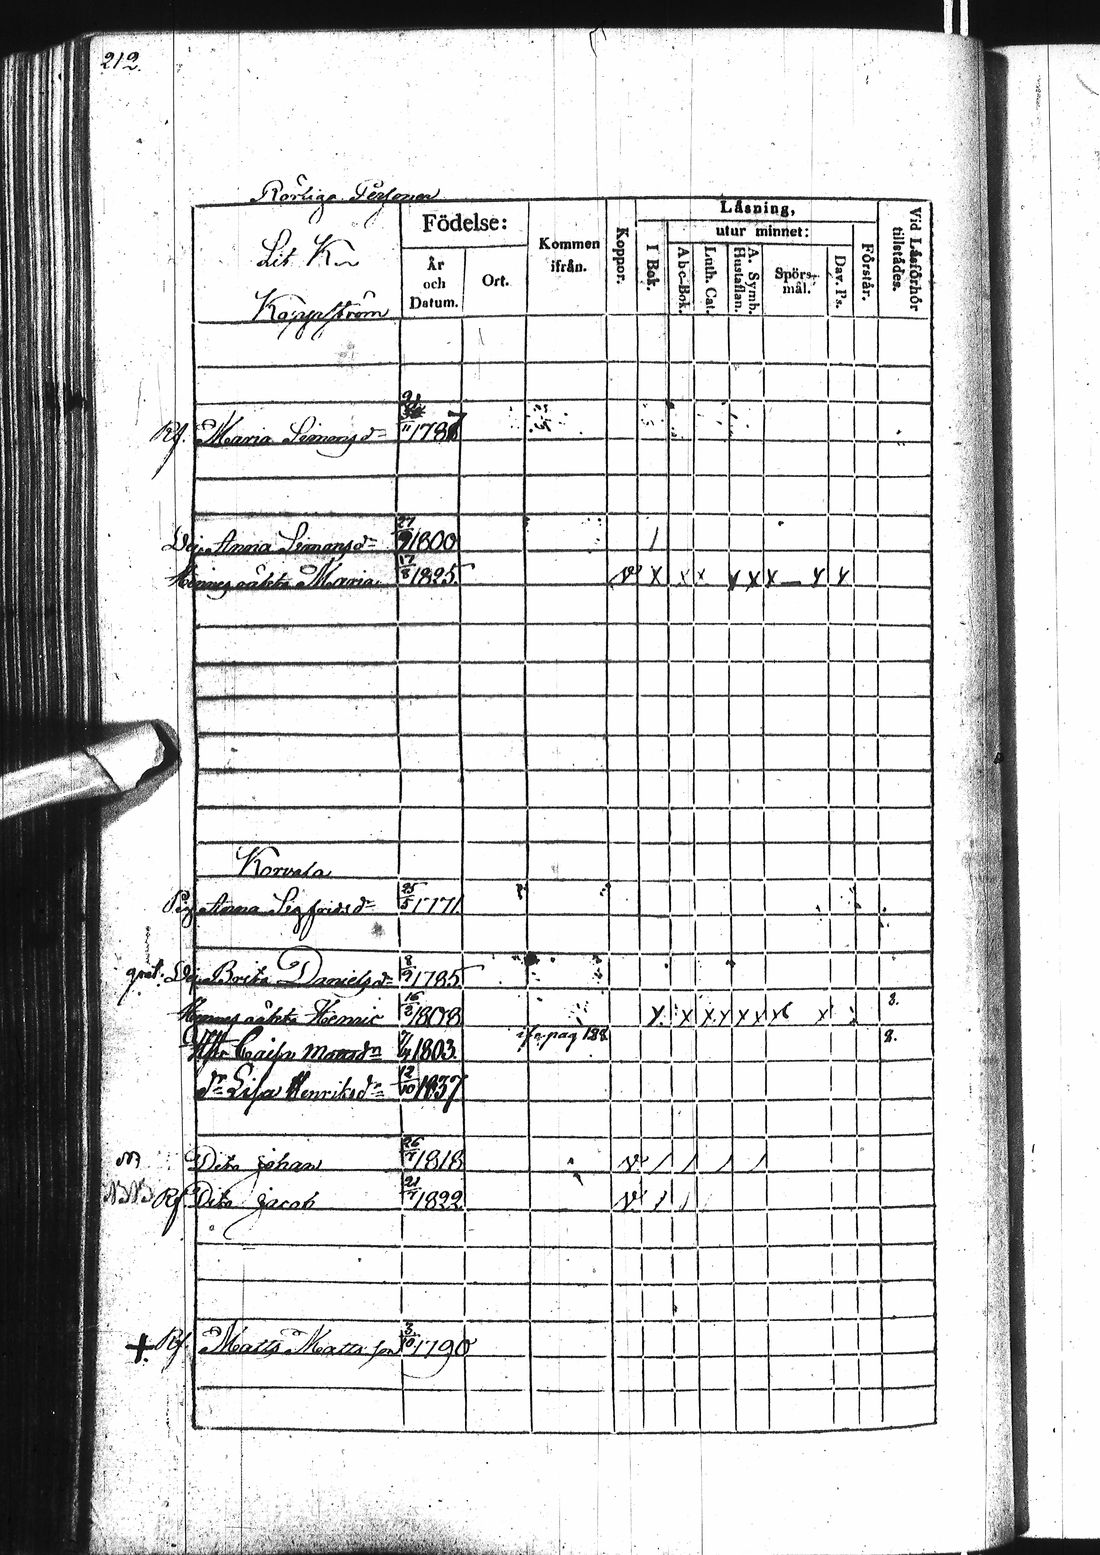 212.
Rörliga Personer
Lit. K.
Kåppström
Födelse:
År och Datum.
Ort.
Kommen ifrån.
Koppor.
Läsning,
I Bok.
utur minnet:
Abc-Bok.
Luth. Cat.
Hustaflan.
A. Symb.
Spörsmål.
Dav. Ps.
Förstår.
Vid Läsförhör tillstädes.
Rf. Maria Simonsdr 11 1787
Anna Simonsdr 27/9 1800 /
Hennes oäkta Maria 17/8 1825 v x x x x x x — x x
Korvala
Pig Anna Sigfridsdr 25/5 1771
Brita Danielsdr 8/9 1785
Hennes oäkta Henric 16/2 1808 x x x x x x x x 8.
Hstr Caisa Mattsdr 7/4 1803 ifr pag 188 8.
dr Lisa Henriksdr 12/10 1837
Dito Johan 26/7 1818 v / / / /
Rf Dito Jacob 21/7 1822 v / /
+ Rf. Matts Matts son 3/10 1790